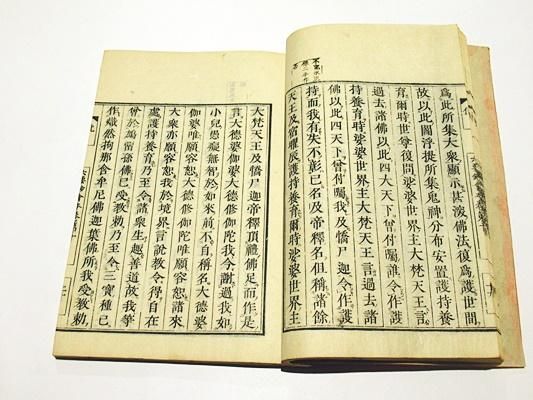 爲此所集大衆顯示甚深佛法復爲護世間
故以此閻浮提所集鬼神分布安置護持養
育爾時世尊復問娑婆世界主大梵天王言
過去諸佛以此四天下曾付囑誰令作護
持養育時娑婆世界主大梵天王言過去諸
佛以此四天王曾付囑我及憍尸迦令作護
持而我有失不彰已名及帝釋名但稱諸餘
天王及宿曜辰護持養育爾時娑婆世界主
大梵天王及憍尸迦帝釋頂禮佛足而作是
言大德婆伽婆大德修伽陀我今謝過我如
小兒愚癡無智於如來前不自稱名大德婆
伽婆唯願容恕大德修伽陀唯願容恕諸來
大衆亦願容恕我於境界言說教令得自在
處護持養育乃至令諸衆生趣善道故我等
曾於鳩留孫佛已受教勅乃至令三寶種已
作熾然拘那含牟尼佛迦葉佛所我受教勅